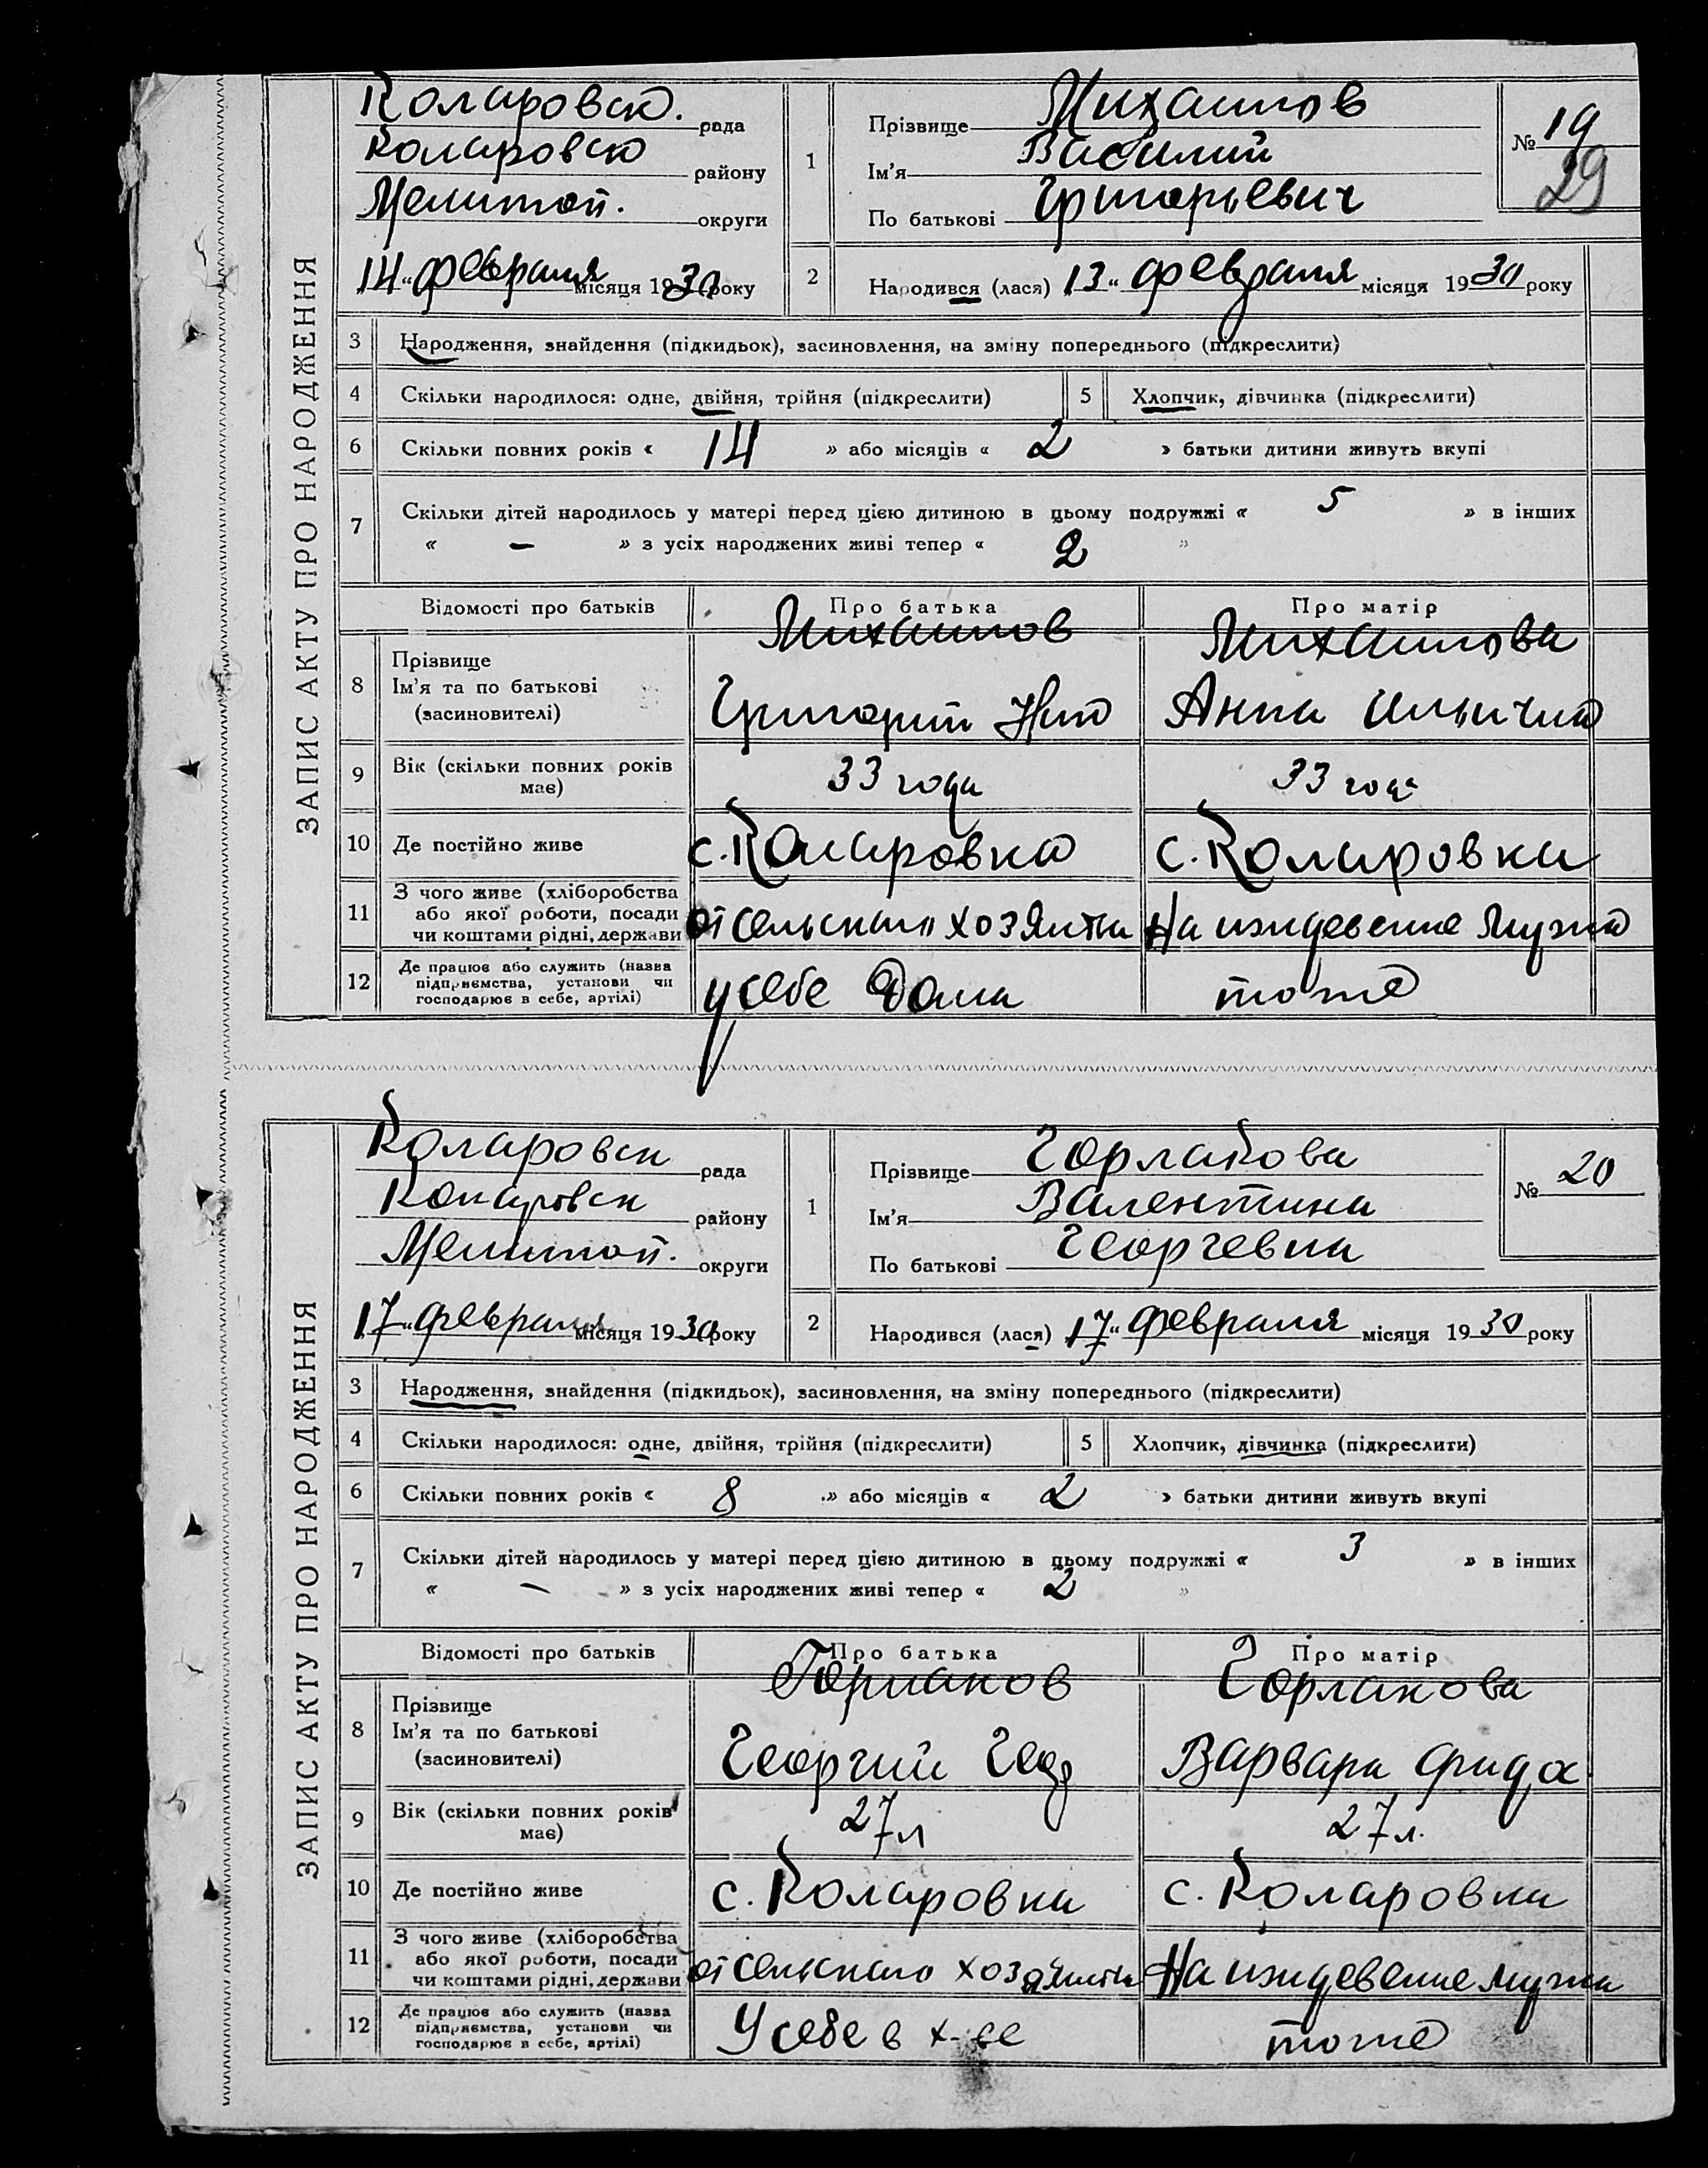 ЗАПИС АКТУ ПРО НАРОДЖЕННЯ
Коларовско. рада
Коларовско району
Мелитоп. округи
14 „ февраля місяця 1930 року
1 Прізвище Михайлов
Ім'я Василий
По батькові Григорьевич
№ 19
29
2 Народився (лася) 13 „ февраля місяця 1930 року
3 Народження, знайдення (підкидьок), засиновлення, на зміну попереднього (підкреслити)
4 Скільки народилося: одне, двійня, трійня (підкреслити) 5 Хлопчик, дівчинка (підкреслити)
6 Скільки повних років « 14 » або місяців « 2 » батьки дитини живуть вкупі
7 Скільки дітей народилось у матері перед цією дитиною в цьому подружжі « 5 » в інших
« — » з усіх народжених живі тепер « 2 »
Відомості про батьків Про батька Про матір
8 Прізвище Михайлов Михайлова
Ім'я та по батькові Григорий Анна
(засиновителі)
9 Вік (скільки повних років має) 33 года 33 года
10 Де постійно живе с. Коларовка с. Коларовка
11 З чого живе (хліборобства
або якої роботи, посади
чи коштами рідні, держави от сельского хозяйства На иждевение мужа
12 Де працює або служить (назва
підприємства, установи чи
господарює в себе, артілі) у себе дома тоже
ЗАПИС АКТУ ПРО НАРОДЖЕННЯ
Коларовск рада
Коларовск району
Мелитоп. округи
17 „ февраля місяця 1930 року
1 Прізвище Горлакова
Ім'я Валентина
По батькові Георгевна
№ 20
2 Народився (лася) 17 „ февраля місяця 1930 року
3 Народження, знайдення (підкидьок), засиновлення, на зміну попереднього (підкреслити)
4 Скільки народилося: одне, двійня, трійня (підкреслити) 5 Хлопчик, дівчинка (підкреслити)
6 Скільки повних років « 8 » або місяців « 2 » батьки дитини живуть вкупі
7 Скільки дітей народилось у матері перед цією дитиною в цьому подружжі « 3 » в інших
« — » з усіх народжених живі тепер « 2 »
Відомості про батьків Про батька Про матір
8 Прізвище Горлаков Горлакова
Ім'я та по батькові Георгий Варвара
(засиновителі)
9 Вік (скільки повних років має) 27 л 27 л.
10 Де постійно живе с. Коларовка с. Коларовка
11 З чого живе (хліборобства
або якої роботи, посади
чи коштами рідні, держави от сельского хозяйства На иждевение мужа
12 Де працює або служить (назва
підприємства, установи чи
господарює в себе, артілі) У себе в х-ве тоже